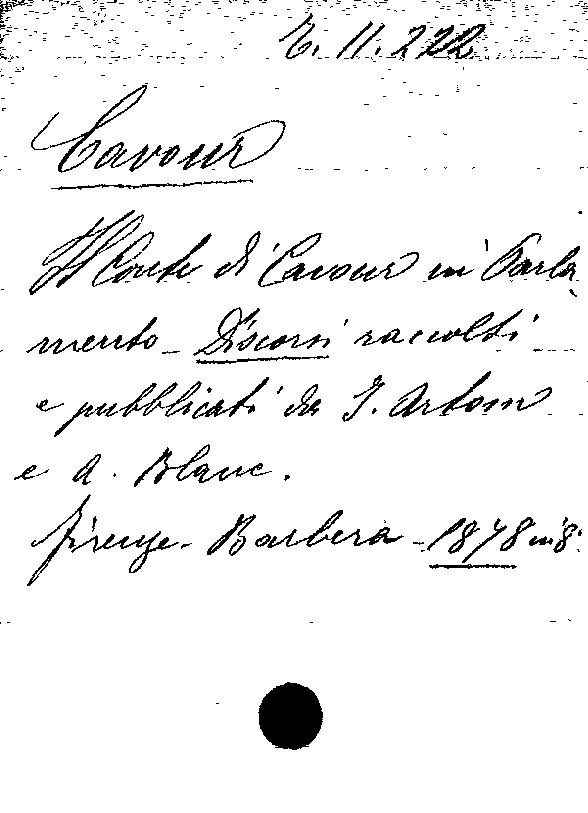 E. 11. 222
Cavour
Il Conte di Cavour in Parla
mento - Discorsi raccolti
e pubblicati da I. Artom
e A. Blanc.
Firenze - Barbera - 1878 in 8.